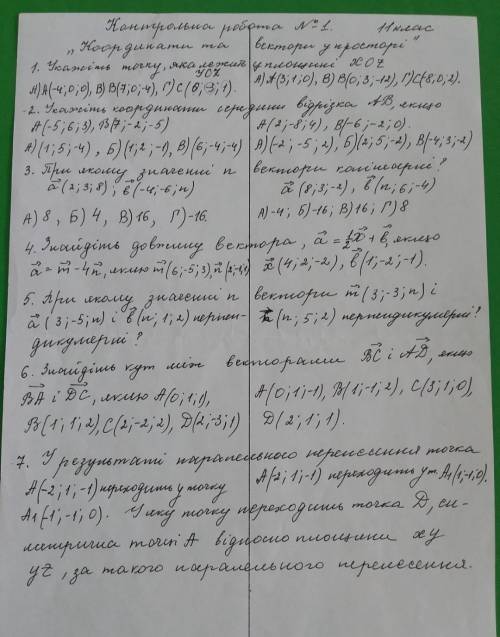 Контрольна робота №1. 11 клас
"Координати та вектори у просторі"
1. Укажіть точку, яка лежить у площині XOZ
YOZ
А)А(-4;0;0), В)В(7;0;-4), Г)С(0;-3;1). А)А(3;1;0), В)В(0;3;-12), Г)С(8;0;2).
2. Укажіть координати середини відрізка АВ, якщо
А(-5;6;3), В(7;-2;-5) А(2;-8;4), В(-6;-2;0).
А)(1;5;-4), Б)(1;2;-1), В)(6;-4;-4) А)(-2;-5;2), Б)(2;5;-2), В)(-4;3;-2)
3. При якому значенні n вектори колінеарні?
a(2;3;8); b(-4;-6;n) a(8;3;-2), b(n;6;-4)
А)8, Б)4, В)16, Г)-16. А)-4; Б)-16; В)16; Г)8
4. Знайдіть довжину вектора, a=½x+b, якщо
a=m-4n, якщо m(6;-5;3), n(2;-1;1) x(4;2;-2), b(1;-2;-1).
5. При якому значенні n вектори m(3;-3;n) і
a(3;-5;n) і b(n;1;2) перпен- n(n;5;2) перпендикулярні?
дикулярні?
6. Знайдіть кут між векторами BC і AD, якщо
BA і DC, якщо А(0;1;1), А(0;1;-1), В(1;-1;2), С(3;1;0),
В(1;1;2), С(2;-2;2), D(2;-3;1) D(2;1;1).
7. У результаті паралельного перенесення точка
А(-2;1;-1) переходить у точку А(2;1;-1) переходить у т. А1(1;-1;0).
А1(-1;-1;0). У яку точку переходить точка D, си-
метрична точці А відносно площини xy
yz, за такого паралельного перенесення.